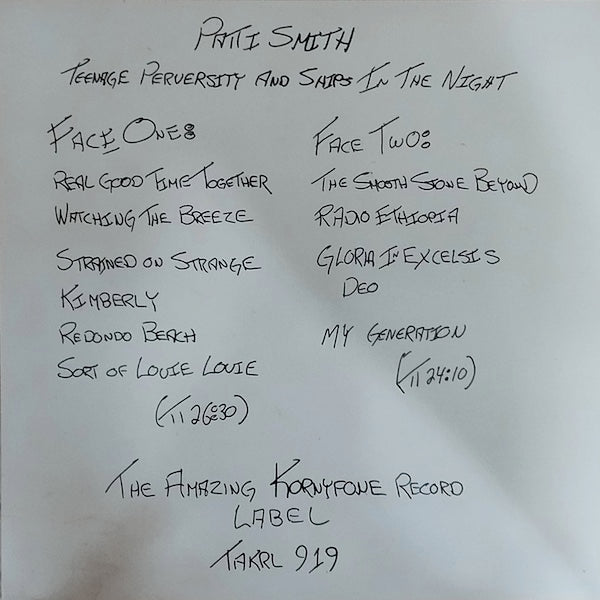 PATTI SMITH
TEENAGE PERVERSITY AND SHIPS IN THE NIGHT
FACE ONE:
REAL GOOD TIME TOGETHER
WATCHING THE BREEZE
STRAINED ON STRANGE
KIMBERLY
REDONDO BEACH
SORT OF LOUIE LOUIE
(TT 26:30)
FACE TWO:
THE SMOOTH STONE BEYOND
RADIO ETHIOPIA
GLORIA IN EXCELSIS
DEO
MY GENERATION
(TT 24:10)
THE AMAZING KORNYFONE RECORD
LABEL
TAKRL 919